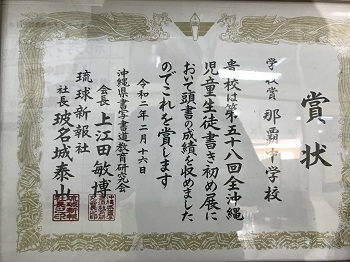 賞状
学校賞 那覇中学校
貴校は第五十八回全沖縄
児童生徒書き初め展に
おいて頭書の成績を収めました
のでこれを賞します
令和二年二月十六日
沖縄県書写書道教育研究会
会長 上江田敏博
琉球新報社
社長 玻名城泰山